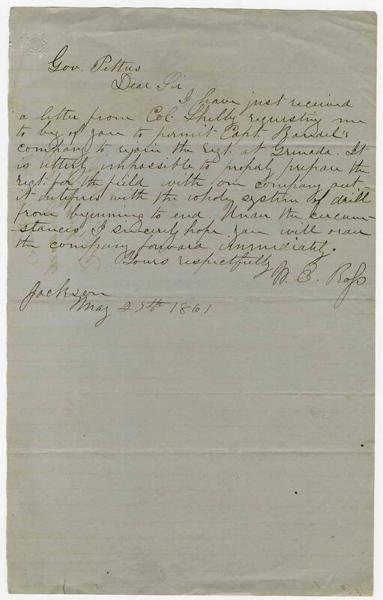 Gov. Pettus
Dear Sir
I have just received
a letter from Col. Shelby requesting me
to beg of you to permit Capt. 
company to rejoin the Regt. at Grenada. It
is utterly impossible to properly prepare the
Regt. for the field with one company out
it interferes with the whole system of drill
from beginning to end. Under the circum-
stances, I sincerely hope you will order
the company forward immediately.
Yours respectfully
W. E. Ross
Jackson
May 29th 1861